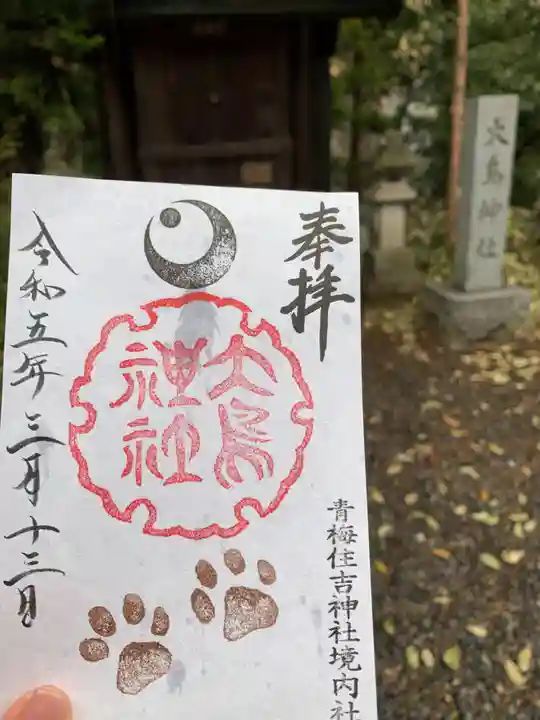 奉拝
大鳥神社
青梅住吉神社境内社
令和五年三月十三日
大鳥神社